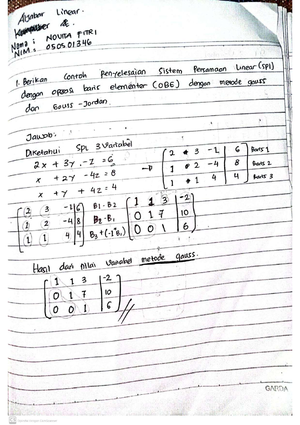 Aljabar Linear.
Nama : NOVITA FITRI
NIM : 050501346
1. Berikan Contoh Penyelesaian Sistem Persamaan Linear (SPL)
dengan operasi baris elementer (OBE) dengan metode gauss
dan Gauss-Jordan.
Jawab:
Diketahui SPL 3 Variabel
2x + 3y - z = 6
x + 2y - 4z = 8
x + y + 4z = 4
2 3 -1 | 6 Baris 1
1 2 -4 | 8 Baris 2
1 1 4 | 4 Baris 3
2 3 -1 | 6 B1 - B2 1 1 3 | -2
1 2 -4 | 8 B2 - B1 0 1 7 | 10
1 1 4 | 4 B3 + (-1*B1) 0 0 1 | 6
Hasil dari nilai Variabel metode gauss.
1 1 3 | -2
0 1 7 | 10
0 0 1 | 6
GARDA